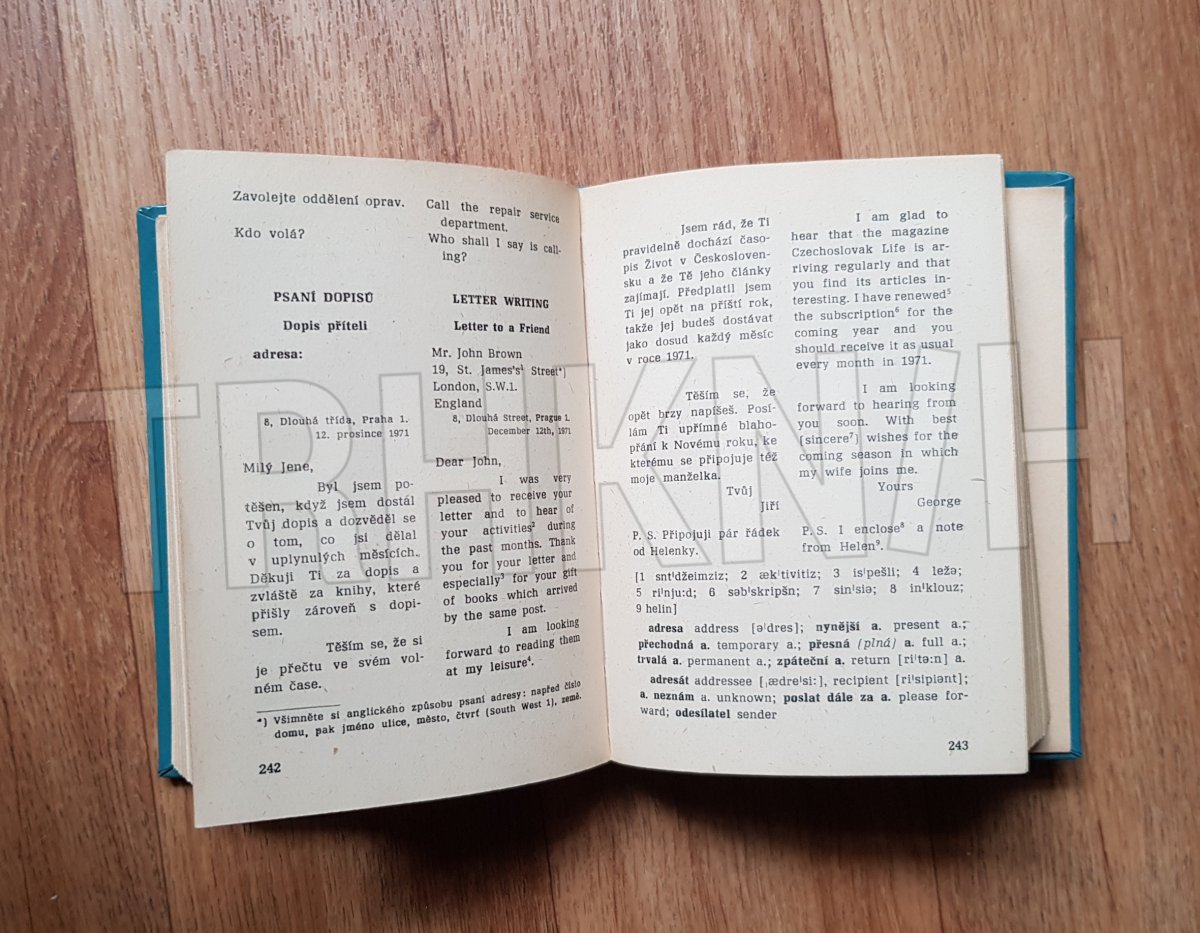 Zavolejte oddělení oprav.
Kdo volá?
PSANÍ DOPISŮ
Dopis příteli
adresa:
8, Dlouhá třída, Praha 1.
12. prosince 1971
Milý Jene,
Byl jsem po-
těšen, když jsem dostál
Tvůj dopis a dozvěděl se
o tom, co jsi dělal
v uplynulých měsících.
Děkuji Ti za dopis a
zvláště za knihy, které
přišly zároveň s dopi-
sem.
Těším se, že si
je přečtu ve svém vol-
ném čase.
Call the repair service
department.
Who shall I say is call-
ing?
LETTER WRITING
Letter to a Friend
Mr. John Brown
19, St. James's¹ Street*)
London, S.W.1.
England
8, Dlouhá Street, Prague 1.
December 12th, 1971
Dear John,
I was very
pleased to receive your
letter and to hear of
your activities² during
the past months. Thank
you for your letter and
especially³ for your gift
of books which arrived
by the same post.
I am looking
forward to reading them
at my leisure⁴.
*) Všimněte si anglického způsobu psaní adresy: napřed číslo
domu, pak jméno ulice, město, čtvrť (South West 1), země.
242
Jsem rád, že Ti
pravidelně dochází časo-
pis Život v Českosloven-
sku a že Tě jeho články
zajímají. Předplatil jsem
Ti jej opět na příští rok,
takže jej budeš dostávat
jako dosud každý měsíc
v roce 1971.
Těším se, že
opět brzy napíšeš. Posí-
lám Ti upřímné blaho-
přání k Novému roku, ke
kterému se připojuje též
moje manželka.
Tvůj
Jiří
P. S. Připojuji pár řádek
od Helenky.
I am glad to
hear that the magazine
Czechoslovak Life is ar-
riving regularly and that
you find its articles in-
teresting. I have renewed⁵
the subscription⁶ for the
coming year and you
should receive it as usual
every month in 1971.
I am looking
forward to hearing from
you soon. With best
[sincere⁷] wishes for the
coming season in which
my wife joins me.
Yours
George
P. S. I enclose⁸ a note
from Helen⁹.
[1 sntˈdžeimziz; 2 ækˈtivitiz; 3 isˈpešli; 4 ležə;
5 riˈnju:d; 6 səbˈskripšn; 7 sinˈsiə; 8 inˈklouz;
9 helin]
adresa address [əˈdres]; nynější a. present a.;
přechodná a. temporary a.; přesná (plná) a. full a.;
trvalá a. permanent a.; zpáteční a. return [riˈtə:n] a.
adresát addressee [ˌædreˈsi:], recipient [riˈsipiənt];
a. neznám a. unknown; poslat dále za a. please for-
ward; odesílatel sender
243
TRHKNIH